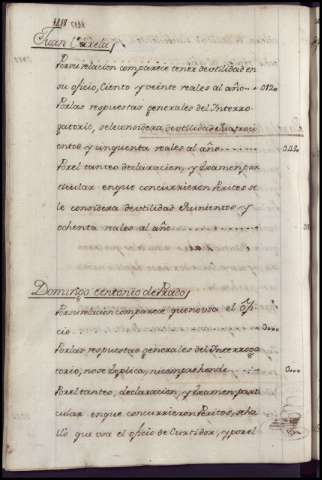 Juan Varela
Por su relacion comparece tener de utilidad en
su oficio, Ciento y veinte reales al año 0120
Por las respuestas generales del Interro-
gatorio, se le considera de utilidad quatrocien-
tos y cinquenta reales al año
Por el tanteo declaracion, y Examen, par-
ticular en que concurrieron Peritos se
le considera de utilidad Quinientos y
ochenta reales al año
Domingo Centonio de Prado
Por su relacion comparece que no usa el ofi-
cio
Por las respuestas generales del Interroga-
torio, no se explica, ni comprehende
Por el tanteo, declaracion, y Examen parti-
cular en que concurrieron Peritos, se ha-
lló que usa el oficio de Curtidor, y por el